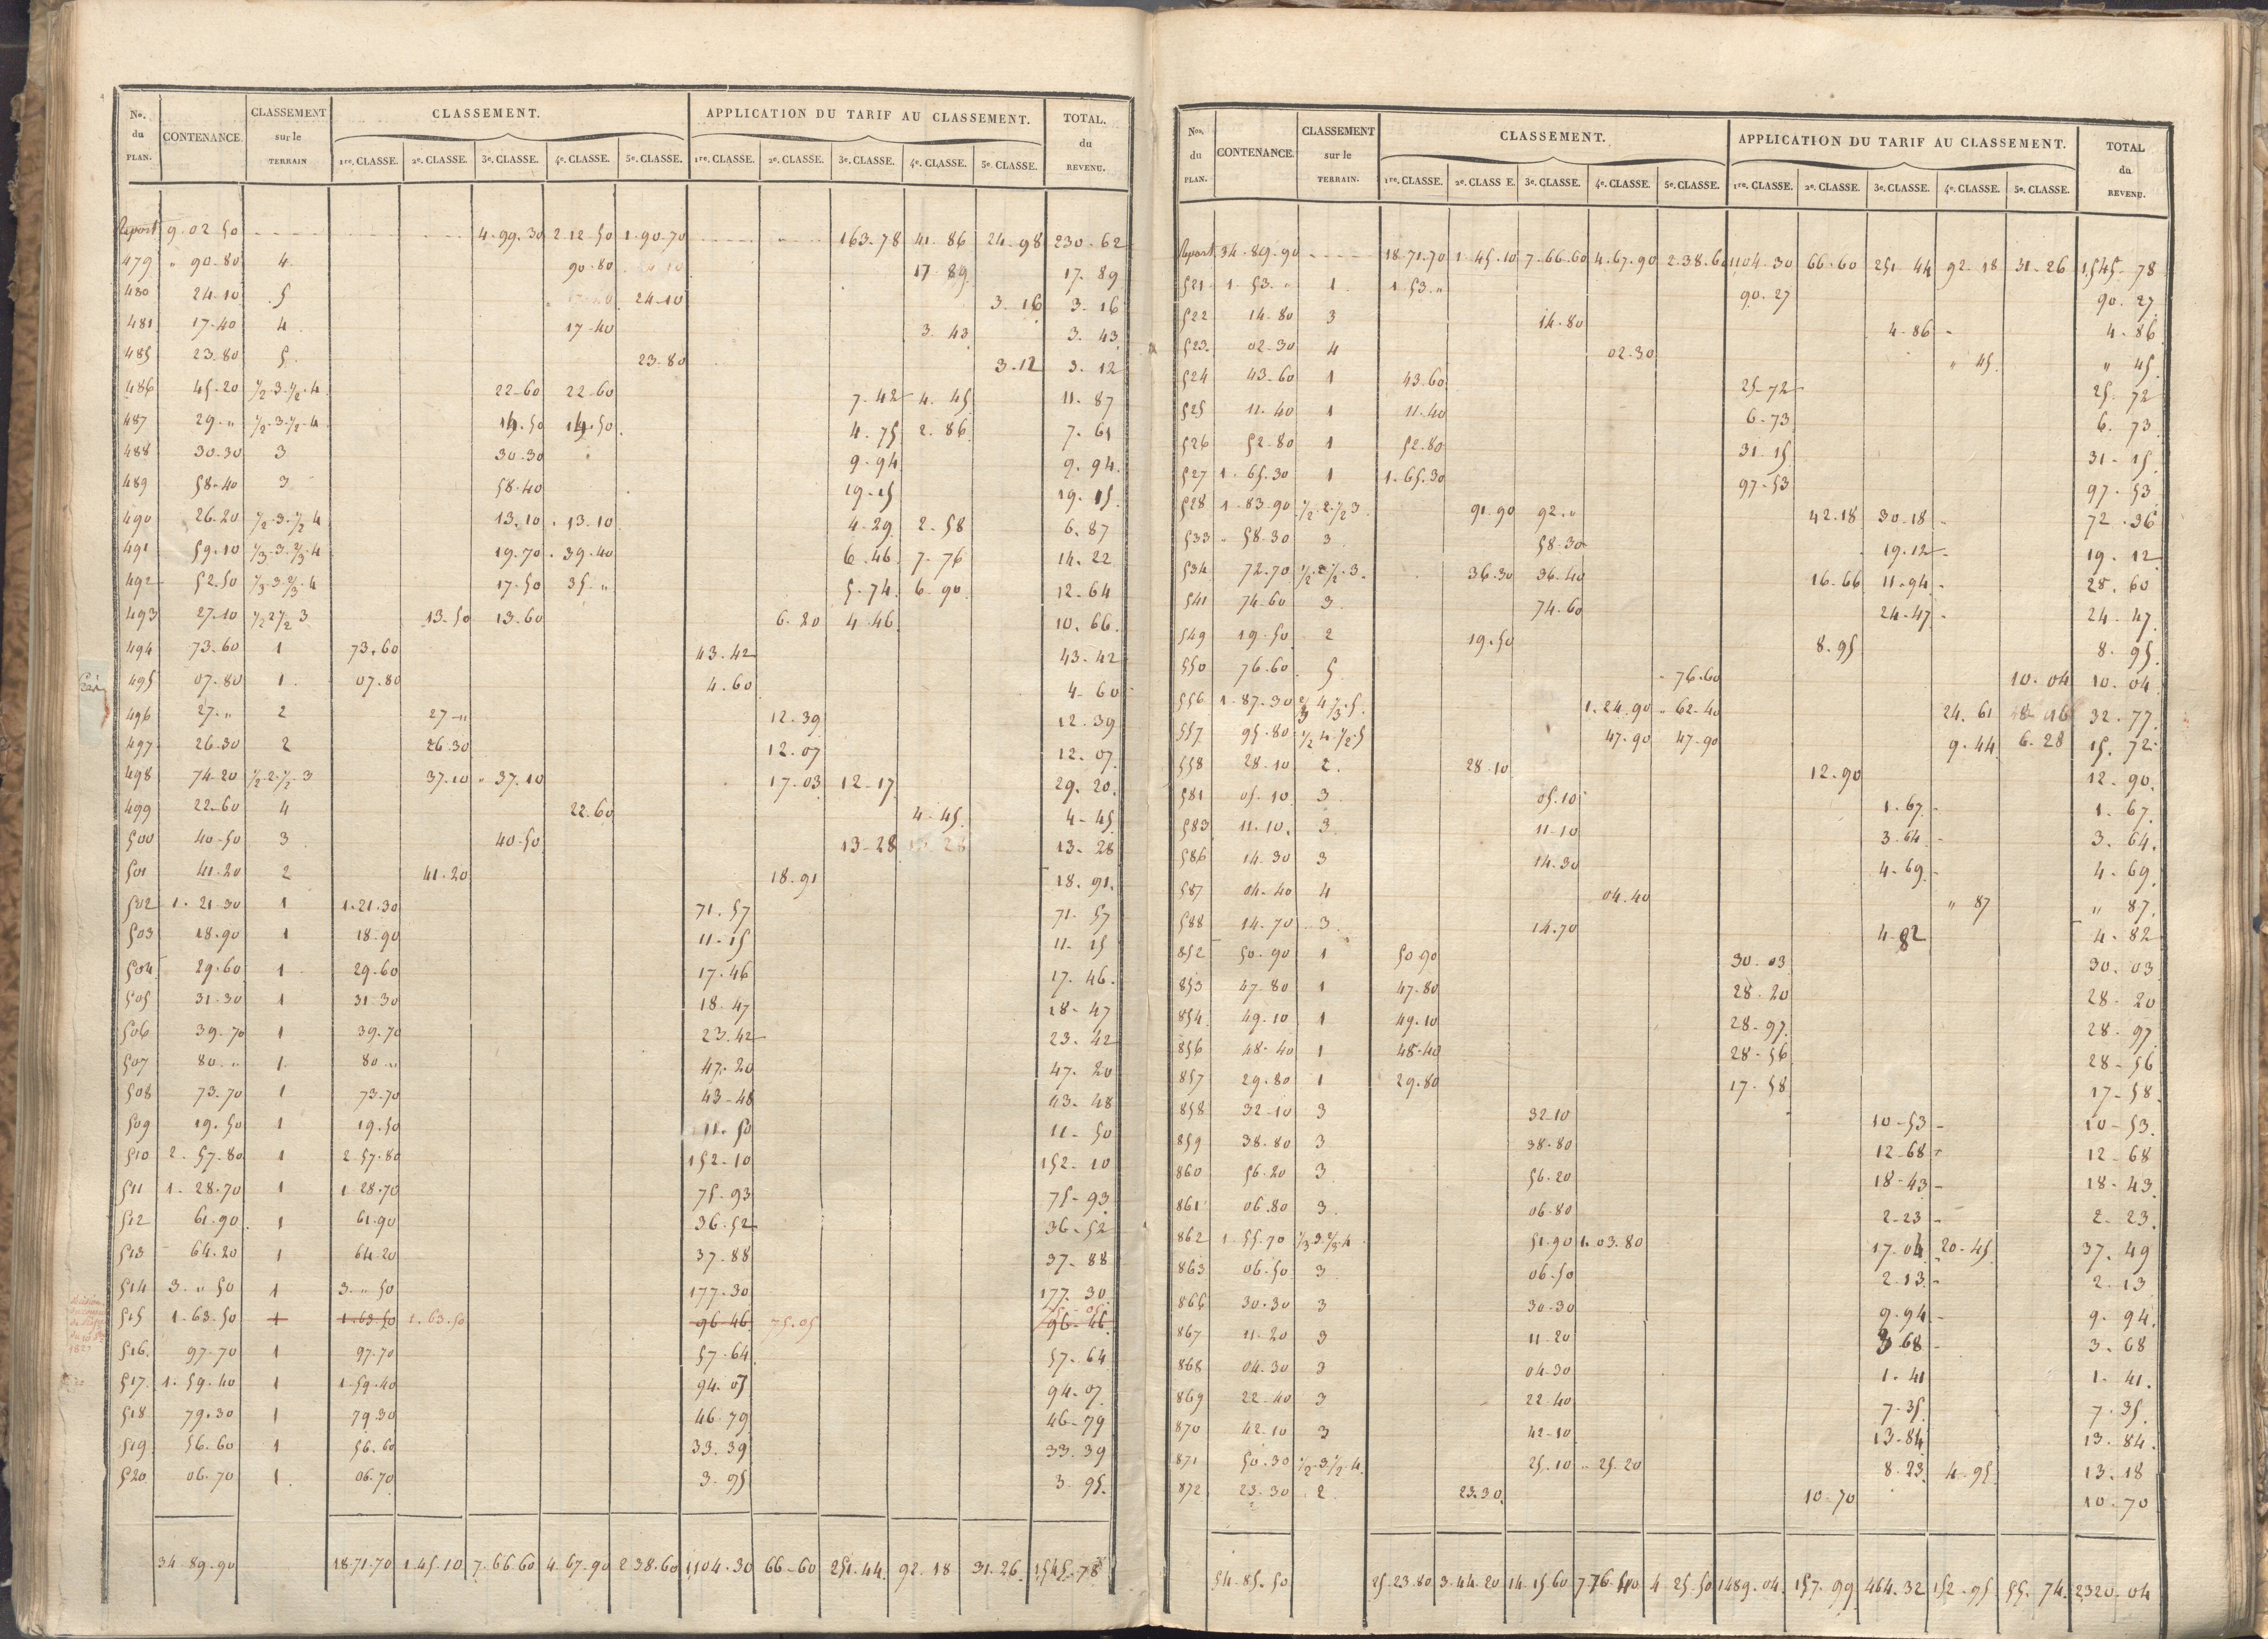 No. du PLAN. CONTENANCE. CLASSEMENT sur le TERRAIN CLASSEMENT. APPLICATION DU TARIF AU CLASSEMENT. TOTAL. du REVENU.
1re. CLASSE. 2e. CLASSE. 3e. CLASSE. 4e. CLASSE. 5e. CLASSE. 1re. CLASSE. 2e. CLASSE. 3e. CLASSE. 4e. CLASSE. 5e. CLASSE.
Report 9.02.50 4.99.30 2.12.50 1.90.70 163.78 41.86 24.98 230.62
479 " 90.80 4 90.80 17.89 17.89
480 24.10 5 24.10 3.16 3.16
481 17.40 4 17.40 3.43 3.43
485 23.80 5 23.80 3.12 3.12
486 45.20 1/2.3.1/2.4 22.60 22.60 7.42 4.45 11.87
487 29." 1/2.3.1/2.4 14.50 14.50 4.75 2.86 7.61
488 30.30 3 30.30 9.94 9.94
489 58.40 3 58.40 19.15 19.15
490 26.20 1/2.3.1/2.4 13.10 13.10 4.29 2.58 6.87
491 59.10 1/3.3.2/3.4 19.70 39.40 6.46 7.76 14.22
492 52.50 1/3.3.2/3.4 17.50 35." 5.74 6.90 12.64
493 27.10 1/2 2 1/2 3 13.50 13.60 6.20 4.46 10.66
494 73.60 1 73.60 43.42 43.42
495 07.80 1 07.80 4.60 4.60
496 27." 2 27." 12.39 12.39
497 26.30 2 26.30 12.07 12.07
498 74.20 1/2.2.1/2.3 37.10 37.10 17.03 12.17 29.20
499 22.60 4 22.60 4.45 4.45
500 40.50 3 40.50 13.28 13.28
501 41.20 2 41.20 18.91 18.91
502 1.21.30 1 1.21.30 71.57 71.57
503 18.90 1 18.90 11.15 11.15
504 29.60 1 29.60 17.46 17.46
505 31.30 1 31.30 18.47 18.47
506 39.70 1 39.70 23.42 23.42
507 80." 1 80." 47.20 47.20
508 73.70 1 73.70 43.48 43.48
509 19.50 1 19.50 11.50 11.50
510 2.57.80 1 2.57.80 152.10 152.10
511 1.28.70 1 1.28.70 75.93 75.93
512 61.90 1 61.90 36.52 36.52
513 64.20 1 64.20 37.88 37.88
514 3." 50 1 3." 50 177.30 177.30
515 1.63.50 1 1.63.50 1.63.50 96.46 75.05 96.46
516 97.70 1 97.70 57.64 57.64
517 1.59.40 1 1.59.40 94.07 94.07
518 79.30 1 79.30 46.79 46.79
519 56.60 1 56.60 33.39 33.39
520 06.70 1 06.70 3.95 3.95
34.89.90 18.71.70 1.45.10 7.66.60 4.67.90 2.38.60 1104.30 66.60 251.44 92.18 31.26 1545.78
Nos. du PLAN. CONTENANCE. CLASSEMENT sur le TERRAIN. CLASSEMENT. APPLICATION DU TARIF AU CLASSEMENT. TOTAL du REVENU.
1re. CLASSE. 2e. CLASSE. 3e. CLASSE. 4e. CLASSE. 5e. CLASSE. 1re. CLASSE. 2e. CLASSE. 3e. CLASSE. 4e. CLASSE. 5e. CLASSE.
Report 34.89.90 18.71.70 1.45.10 7.66.60 4.67.90 2.38.60 1104.30 66.60 251.44 92.18 31.26 1,545.78
521 1.53." 1 1.53." 90.27 90.27
522 14.80 3 14.80 4.86 4.86
523 02.30 4 02.30 " 45 " 45
524 43.60 1 43.60 25.72 25.72
525 11.40 1 11.40 6.73 6.73
526 52.80 1 52.80 31.15 31.15
527 1.65.30 1 1.65.30 97.53 97.53
528 1.83.90 1/2.2.1/2 3 91.90 92." 42.18 30.18 72.36
533 " 58.30 3 58.30 19.12 19.12
534 72.70 1/2.2 1/2.3 36.30 36.40 16.66 11.94 28.60
541 74.60 3 74.60 24.47 24.47
549 19.50 2 19.50 8.95 8.95
550 76.60 5 76.60 10.04 10.04
556 1.87.30 2/3 4 1/3.5 1.24.90 " 62.40 24.61 8.16 32.77
557 95.80 1/2 4.1/2.5 47.90 47.90 9.44 6.28 15.72
558 28.10 2 28.10 12.90 12.90
581 05.10 3 05.10 1.67 1.67
583 11.10 3 11.10 3.64 3.64
586 14.30 3 14.30 4.69 4.69
587 04.40 4 04.40 " 87 " 87
588 14.70 3 14.70 4.82 4.82
852 50.90 1 50.90 30.03 30.03
853 47.80 1 47.80 28.20 28.20
854 49.10 1 49.10 28.97 28.97
856 48.40 1 48.40 28.56 28.56
857 29.80 1 29.80 17.58 17.58
858 32.10 3 32.10 10.53 10.53
859 38.80 3 38.80 12.68 12.68
860 56.20 3 56.20 18.43 18.43
861 06.80 3 06.80 2.23 2.23
862 1.55.70 1/3 3 2/3.4 51.90 1.03.80 17.04 20.45 37.49
863 06.50 3 06.50 2.13 2.13
866 30.30 3 30.30 9.94 9.94
867 11.20 3 11.20 3.68 3.68
868 04.30 3 04.30 1.41 1.41
869 22.40 3 22.40 7.35 7.35
870 42.10 3 42.10 13.84 13.84
871 50.30 1/2.3 1/2.4 25.10 25.20 8.23 4.95 13.18
872 23.30 2 23.30 10.70 10.70
54.85.50 25.23.80 3.44.20 14.15.60 7.76.40 4.25.50 1489.04 157.99 464.32 152.95 55.74 2320.04